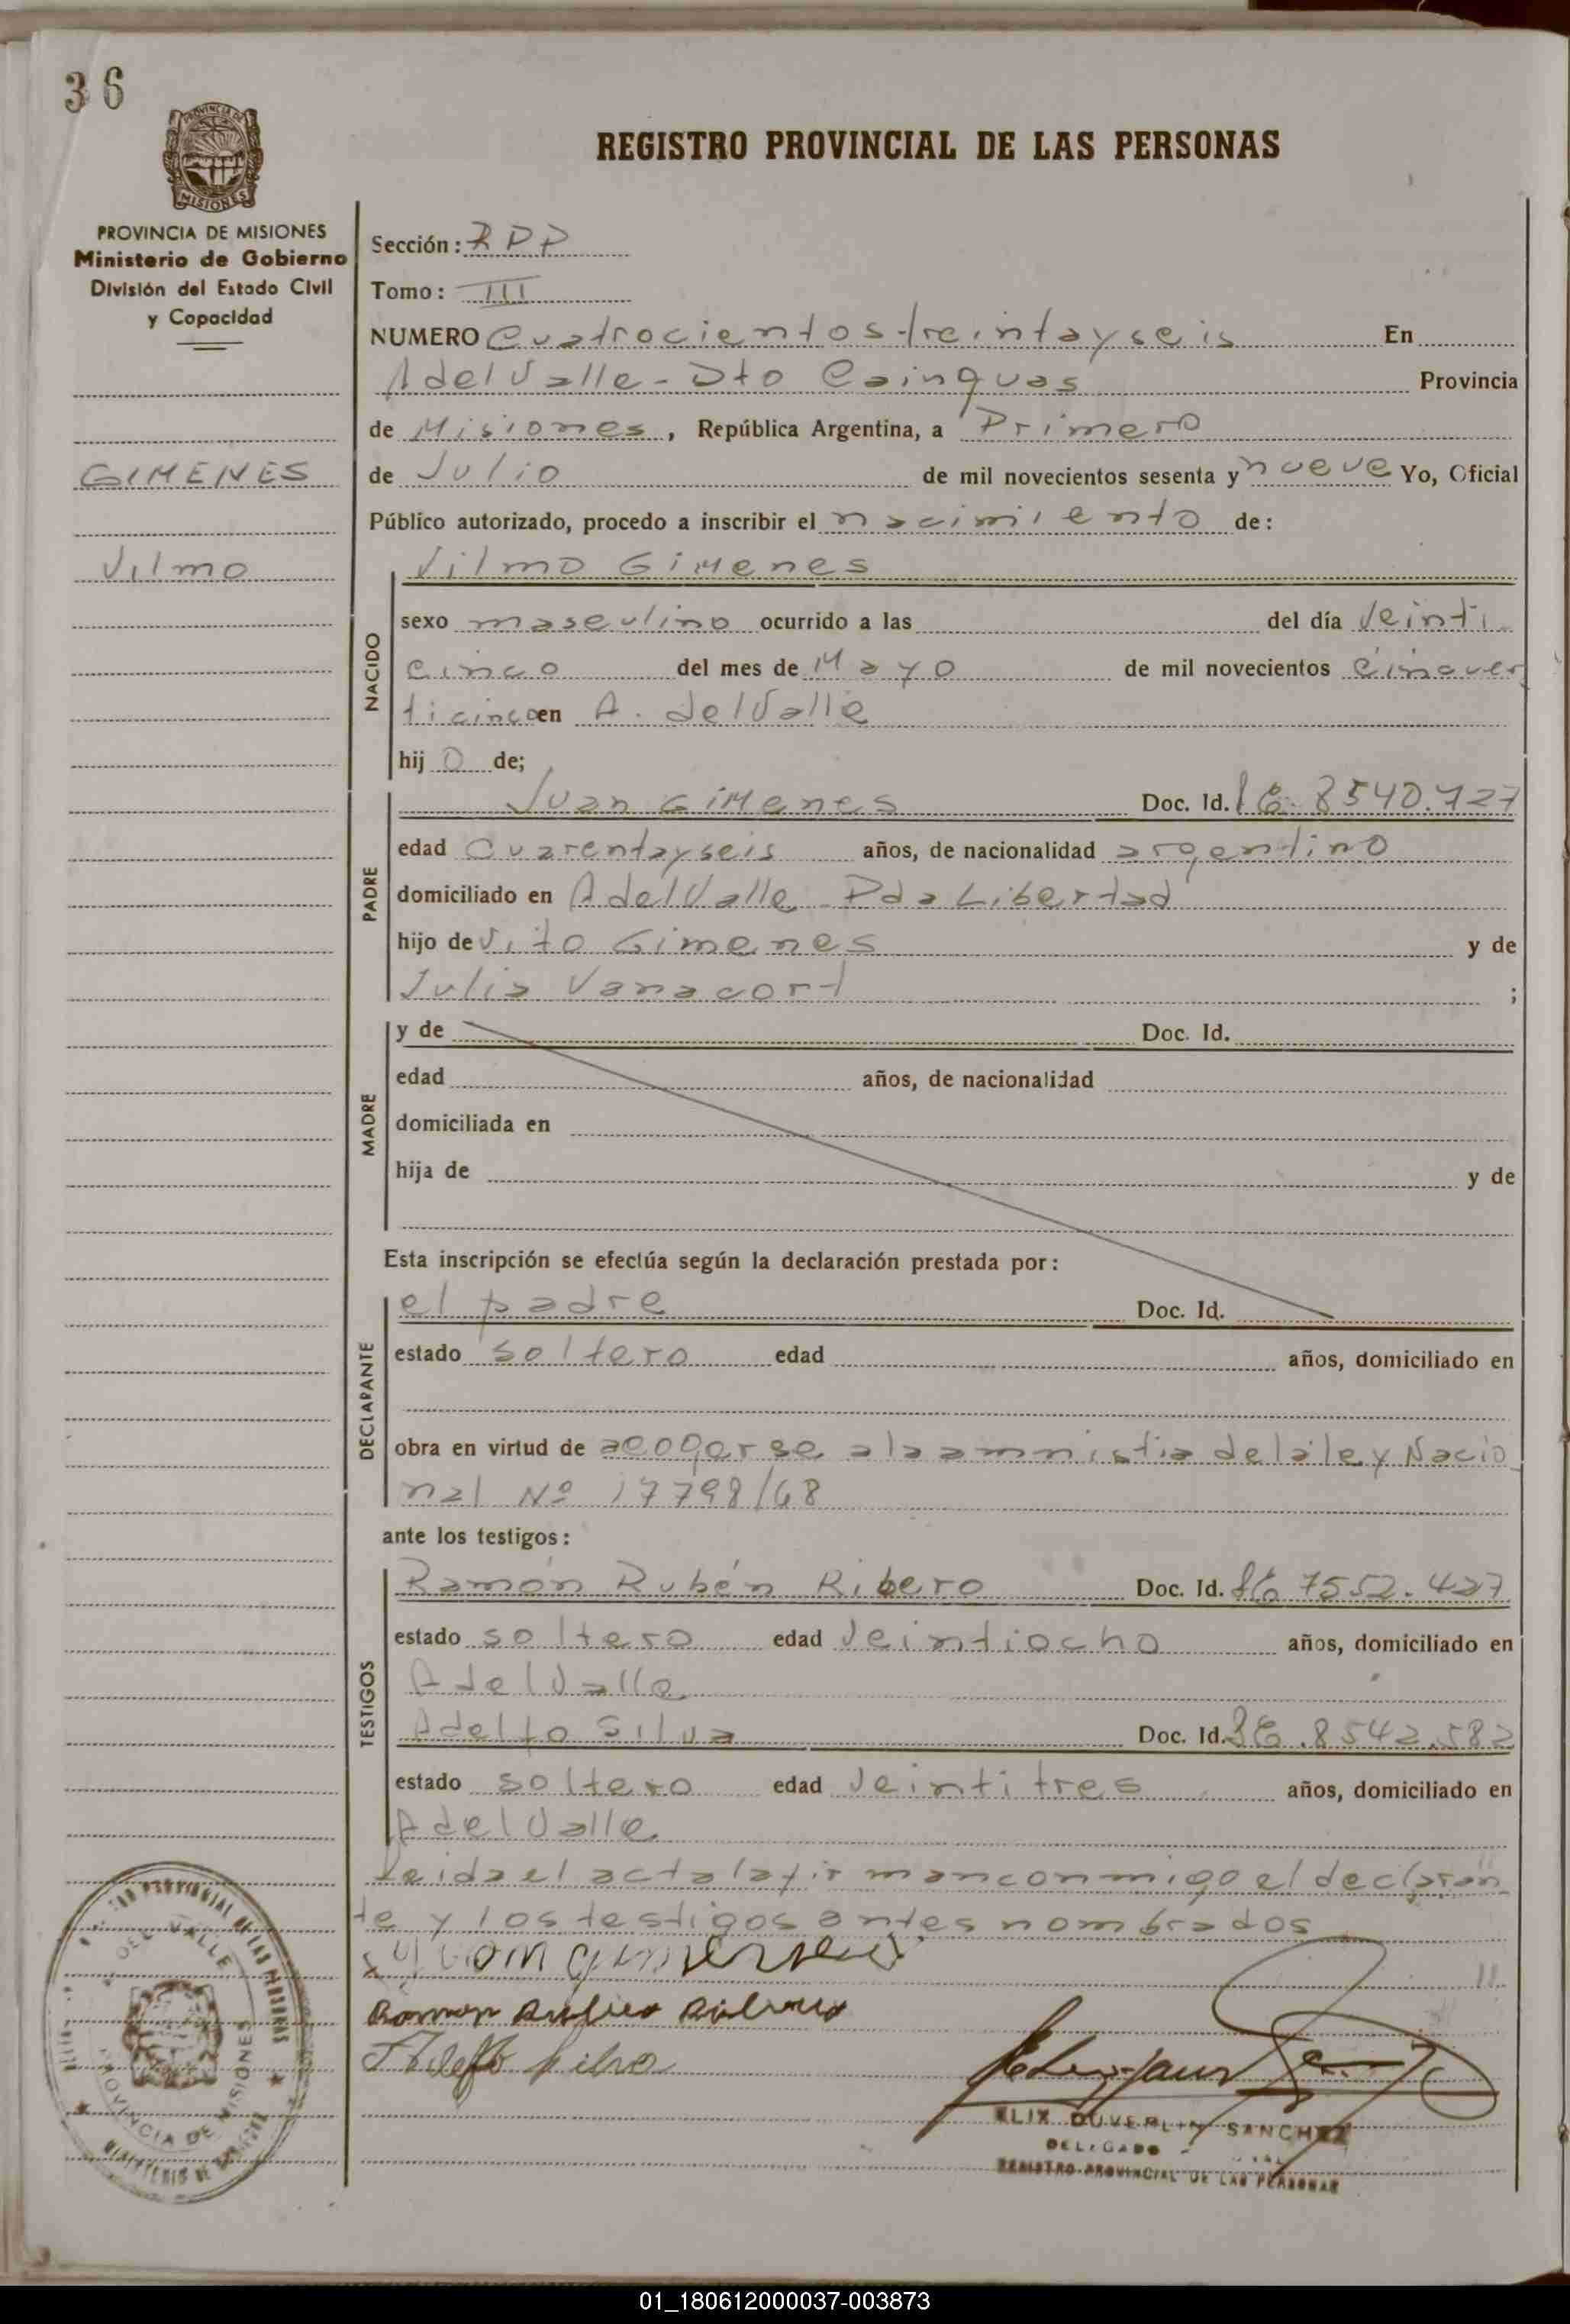 36
PROVINCIA DE MISIONES
MISIONES
PROVINCIA DE MISIONES
Ministerio de Gobierno
División del Estado Civil
y Capacidad
GIMENES
Vilmo
REGISTRO PROVINCIAL DE LAS PERSONAS
Sección: RPP
Tomo: III
NUMERO Cuatrocientos treintayseis En
A del Valle - Dto Cainguas Provincia
de Misiones, República Argentina, a Primero
de Julio de mil novecientos sesenta y nueve Yo, Oficial
Público autorizado, procedo a inscribir el nacimiento de:
Vilmo Gimenes
NACIDO
sexo masculino ocurrido a las del día Veinti
cinco del mes de Mayo de mil novecientos Cincuen
ticinco en A. del Valle
hij o de;
PADRE
Juan Gimenes Doc. Id. LE. 8540.727
edad Cuarentayseis años, de nacionalidad argentino
domiciliado en A del Valle - Pda Libertad
hijo de Vito Gimenes y de
Julia Vanacort ;
MADRE
y de Doc. Id.
edad años, de nacionalidad
domiciliada en
hija de y de
Esta inscripción se efectúa según la declaración prestada por:
DECLARANTE
el padre Doc. Id.
estado soltero edad años, domiciliado en
obra en virtud de acogerse a la amnistia de la ley Nacio
nal Nº 17798/68
ante los testigos:
TESTIGOS
Ramón Rubén Ribero Doc. Id. LE 7552.427
estado soltero edad Veintiocho años, domiciliado en
A del Valle
Adelfo Silva Doc. Id. LE.8542.582
estado soltero edad Veintitres años, domiciliado en
A del Valle
Leida el acta la firman conmigo el declaran
te y los testigos antes nombrados
Juan Gimenes
Adelfo Silva
DEL VALLE
PROVINCIA DE MISIONES
ELIX DUVERLIN SANCHEZ
DELEGADO
REGISTRO PROVINCIAL DE LAS PERSONAS
01_180612000037-003873